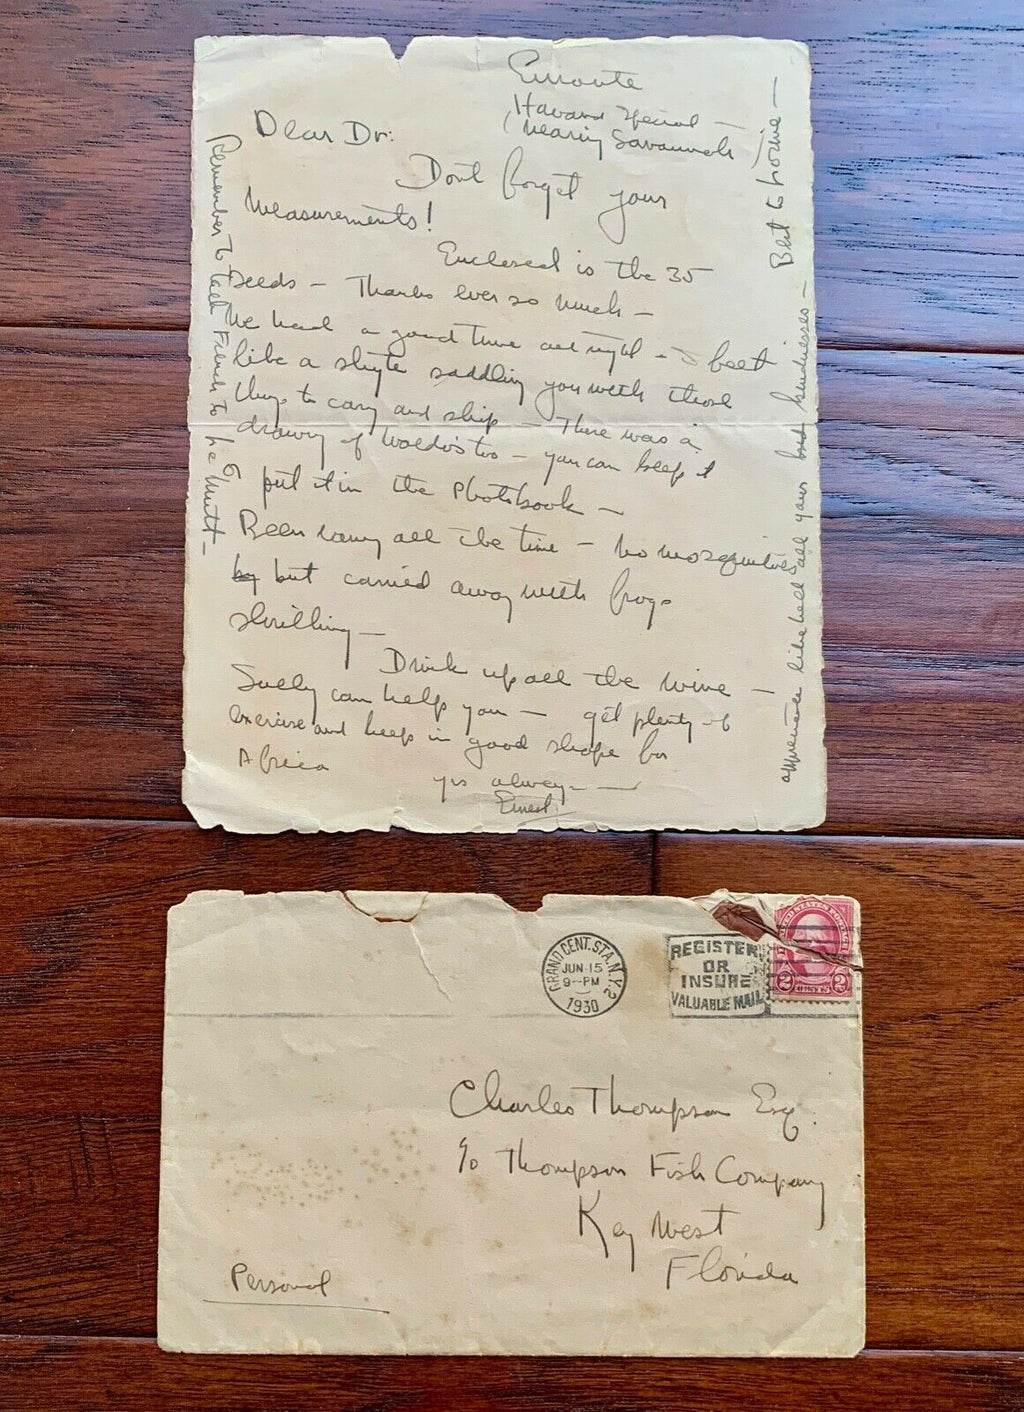 Enroute
Havana Special —
nearing Savannah
Dear Dr:
Dont forget your
Measurements!
Enclosed is the 35
seeds — Thanks ever so much —
We had a good time all right — I feel
like a shyte saddling you with those
things to carry and ship — There was a
drawing of Waldo's too — you can keep it
put it in the Photobook —
Been rainy all the time — no mosquitoes
but carried away with frogs
shrilling —
Drink up all the wine —
Sully can help you — get plenty of
exercise and keep in good shape for
Africa
yrs always —
Ernest.
Remember to talk French to the Mutt —
appreciate like hell all your kindnesses —
Best to Lorine —
GRAND CENT. STA. N.Y. 2
JUN 15
9-PM
1930
REGISTER
OR
INSURE
VALUABLE MAIL
UNITED STATES POSTAGE
2 CENTS 2
Charles Thompson Esq.
c/o Thompson Fish Company
Key West
Florida
Personal